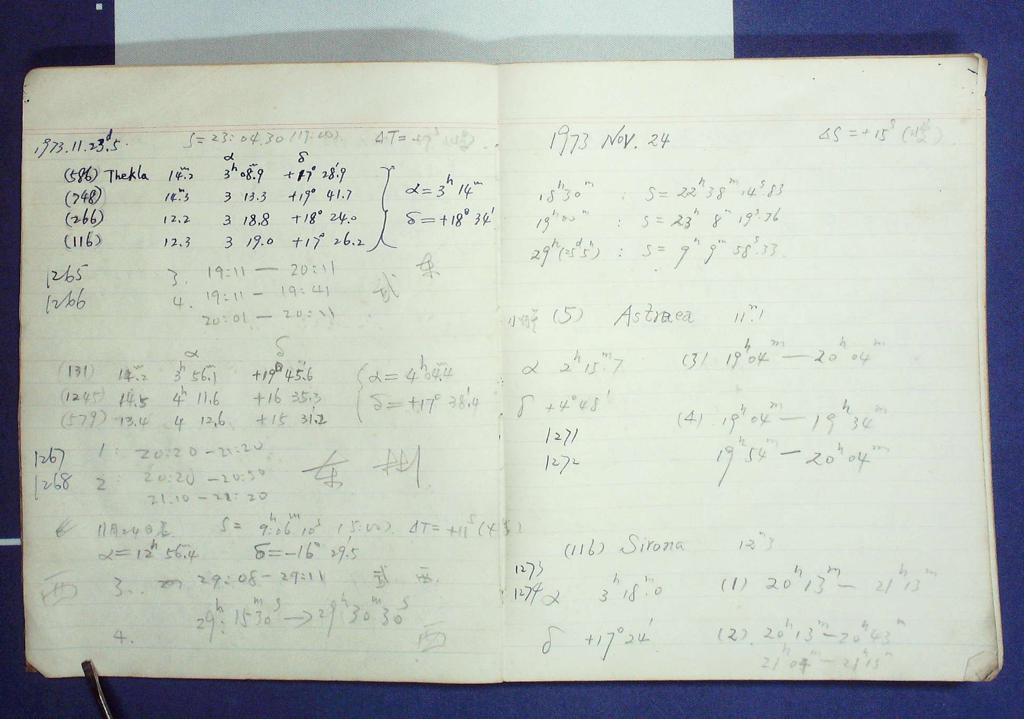 1973.11.23.ᵈ5. S=23:04.30 (19:00). ΔT=
α δ
(586) Thekla 14.ᵐ2 3ʰ 08.ᵐ9 +17° 28.'9
(748) 14.ᵐ3 3 13.3 +19° 41.7
(266) 12.2 3 18.8 +18° 24.0
(116) 12.3 3 19.0 +17° 26.2
α=3ʰ 14ᵐ
δ=+18° 34'
1265 3. 19:11 — 20:11 東
1266 4. 19:11 — 19:41
20:01 — 20:11
α δ
(131) 14.ᵐ2 3ʰ 56.ᵐ1 +19° 45.'6
(1245) 14.5 4ʰ 11.6 +16 35.3
(579) 13.4 4 12.6 +15 31.2
α=4ʰ 04.ᵐ4
δ=+17° 38.'4
1267 1: 20:20 — 21:20 東
1268 2: 20:20 — 20:50
21:10 — 21:20
11月24日 S= 9:06ᵐ 10ˢ (5:00). ΔT=+11ˢ
α=12ʰ 56.ᵐ4 δ=-16° 29.'5
西 3. 29:08 — 29:11 西
29ʰ:15ᵐ30ˢ → 29ʰ30ᵐ30ˢ
4. 西
1973 Nov. 24 ΔS=+15ˢ
18ʰ30ᵐ : S=22ʰ 38ᵐ 14ˢ.83
19ʰ00ᵐ : S=23ʰ 8ᵐ 19ˢ.76
29ʰ(25ᵈ5ʰ) : S= 9ʰ 9ᵐ 58ˢ.33
(5) Astraea 11ᵐ.1
α 2ʰ 15ᵐ.7 (3) 19ʰ04ᵐ — 20ʰ04ᵐ
δ +4° 48' (4) 19ʰ04ᵐ — 19ʰ34ᵐ
1271
1272 19ʰ54ᵐ — 20ʰ04ᵐ
(116) Sirona 12ᵐ3
1273
1274 α 3ʰ 18ᵐ.0 (1) 20ʰ13ᵐ — 21ʰ13ᵐ
δ +17° 24' (2) 20ʰ13ᵐ — 20ʰ43ᵐ
21ʰ04ᵐ — 21ʰ13ᵐ